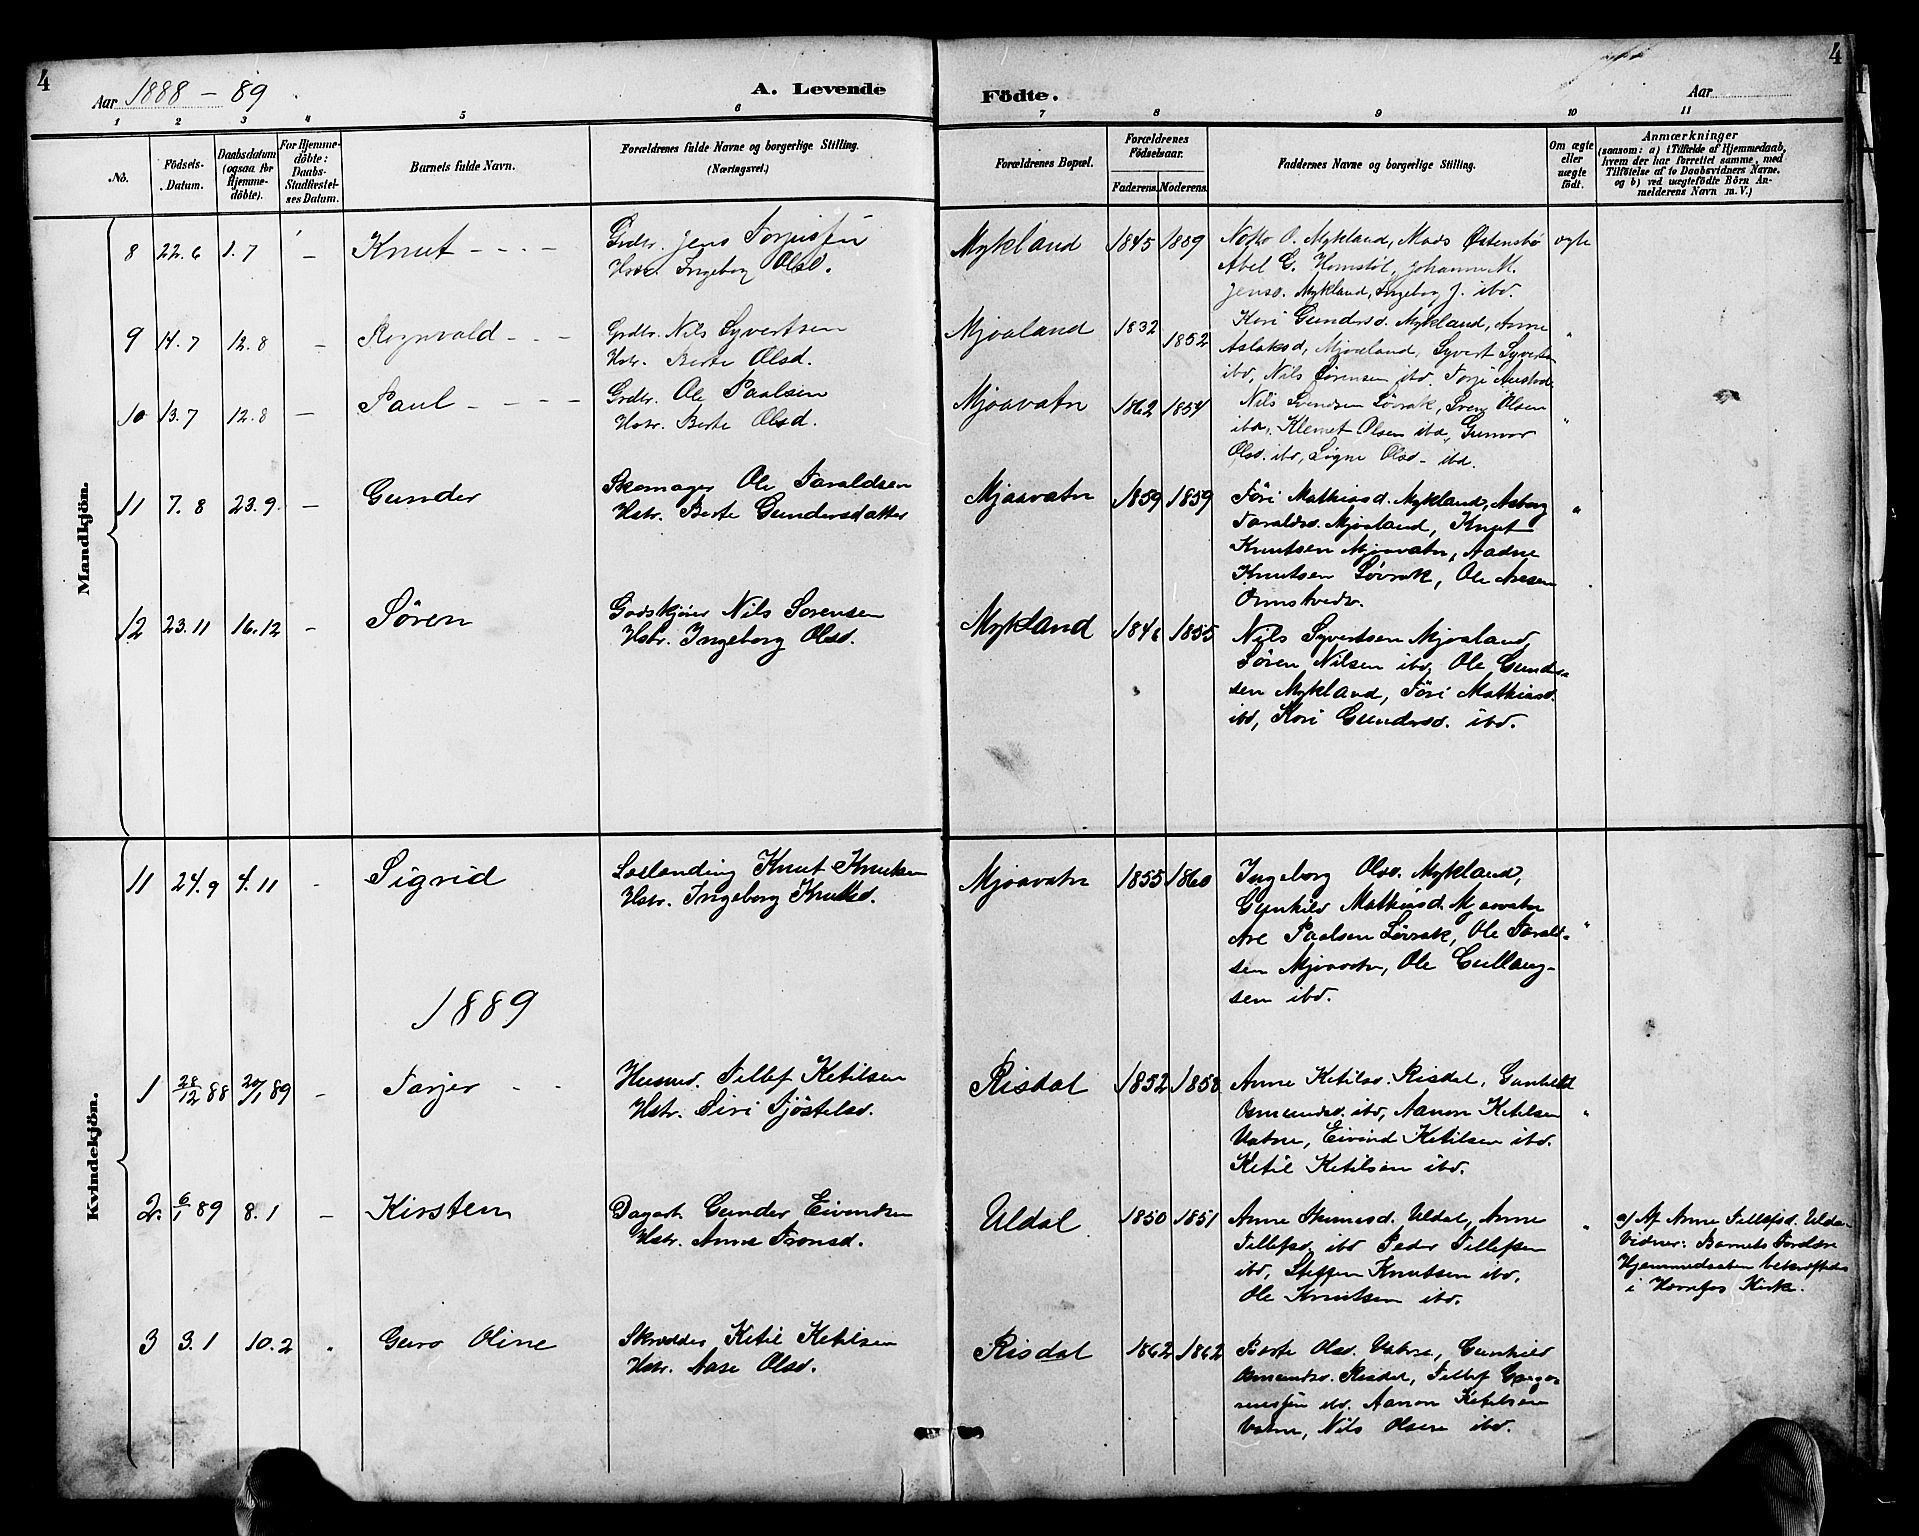 4
4
Aar 1888 - 89
A. Levende
Födte.
Aar
1 2 3 4 5 6 7 8 9 10 11
No.
Födsels-
Datum.
Daabsdatum
(ogsaa for
Hjemme-
döbte).
For Hjemme-
döbte:
Daabs-
Stadfæstel-
ses Datum.
Barnets fulde Navn.
Forældrenes fulde Navne og borgerlige Stilling.
(Næringsvei.)
Forældrenes Bopæl.
Forældrenes
Födselsaar.
Faderens.
Moderens.
Faddernes Navne og borgerlige Stilling.
Om ægte
eller
uægte
födt.
Anmærkninger
(saasom: a) i Tilfælde af Hjemmedaab,
hvem der har forrettet samme, med
Tilföielse af to Daabsvidners Navne.
og b) ved uægtefödte Börn An-
melderens Navn m. V.)
Mandkjön.
8 22.6 1.7 – Knut - - - -
Grdbr. Jens Torjussen
Hstr. Ingeborg Olsd.
Mykland 1845 1889
Notto O. Mykland, Mads Østensbø
Abel G. Homstøl, Johanne M.
Jensd. Mykland, Ingeborg J. ibd.
ægte
9 14.7 12.8 – Rognvald - - -
Grdbr. Nils Syvertsen
Hstr. Berte Olsd.
Mjoaland 1832 1852
Kari Gundersd. Mykland, Anne
Aslaksd, Mjoaland, Syvert Syvertsn
ibd, Nils Sørensen ibd. Torje
"
10 13.7 12.8 – Paul - - - -
Grdbr. Ole Paalsen
Hstr. Berte Olsd.
Mjoavatn 1862 1854
Nils Svendsen Løvrak, Sven Olsen
ibd, Klemet Olsen ibd, Gunvor
Olsd. ibd, Signe Olsd - ibd.
"
11 7.8 23.9. – Gunder
Skomager Ole Taraldsen
Hstr. Berte Gundersdatter
Mjoavatn 1859 1859
Töri Mathiasd. Mykland, Asborg
Taraldsd. Mjoaland, Knut
Knutsen Mjoavatn, Aadne
Knutsen Løvrak, Ole Aresen
"
12 23.11 16.12 – Sören
Godskjöier Nils Sorensen
Hstr. Ingeborg Olsd.
Mykland 1846 1855
Nils Syvertsen Mjoaland,
Sören Nilsen ibd, Ole Gunder-
sen Mykland, Töri Mathiasd.
ibd, Kari Gundersd. ibd.
Kvindekjön.
11 24.9 4.11 - Sigrid
Løslending Knut Knutsen
Hstr. Ingeborg Knutsd.
Mjoavatn 1855 1860
Ingeborg Olsd. Mykland,
Gunhild Mathiasd. Mjoavatn
Are Paalsen Løvrak, Ole Tarald-
sen Mjoavatn, Ole Gullaug-
sen ibd.
"
1889
1 28/12 88 20/1 89 – Tarjer - -
Husmd. Tellef Ketilsen
Hstr. Siri Tjöstelsd.
Risdal 1852 1858
Anne Ketilsd. Risdal, Gunhild
Osmundsd. ibd, Aanon Ketilsen
Vatne, Eivind Ketilsen ibd.
Ketil Ketilsen ibd.
"
2. 6/1 89 8.1 – Kirsten
Dagarb. Gunder Eivindsen
Hstr. Anne Tronsd.
Uldal 1850 1851
Anne Uldal, Anne
Tellefsd. ibd Peder Tellefsen
ibd, Steffen Knutsen ibd,
Ole Knutsen ibd.
"
a) Af Anne Tellefsd. Uldal
Vidner: Barnets Forældre
Hjemmedaaben bekræftedes
i Herefos Kirke.
3 3.1 10.2 " Guro Oline
Skrædder Ketil Ketilsen
Hstr. Aase Olsd.
Risdal 1862 1862
Berte Olsd. Vatne, Gunhild
Osmundsd. Risdal, Tellef
ibd. Aanon Ketilsen
Vatne, Nils Olsen ibd.